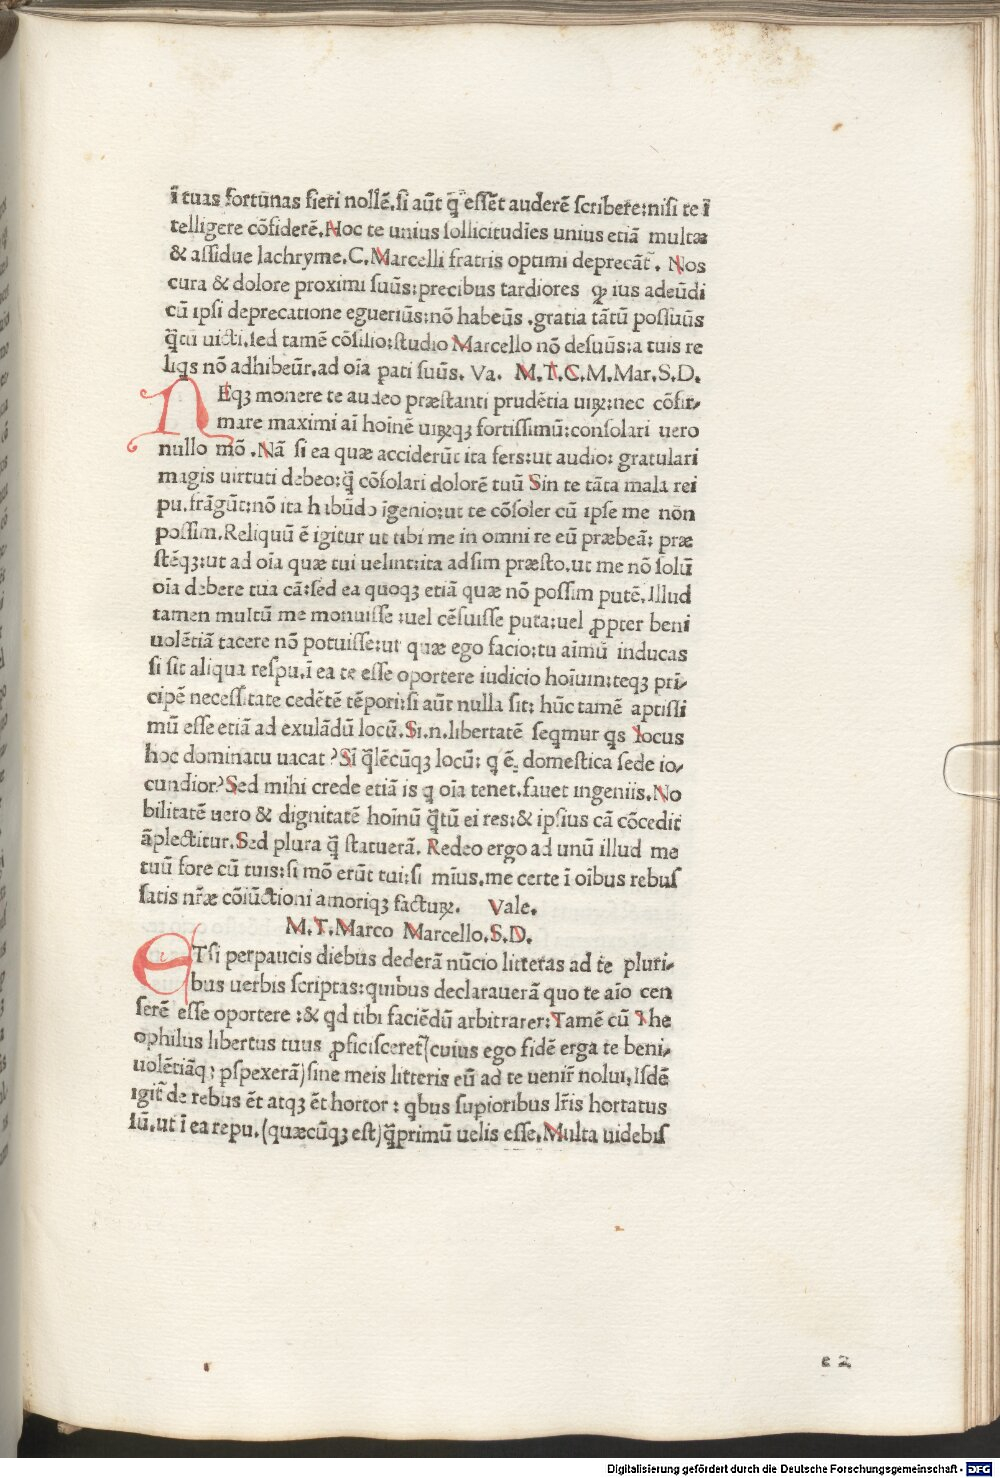 ĩ tuas fortunas fieri nollẽ. si aũt q̃ essẽt auderẽ scribere: nisi te ĩ
telligere cõfiderẽ. Hoc te unius sollicitudĩes unius etiã multæ
& assidue lachryme. C. Marcelli fratris optimi deprecãt̃. Nos
cura & dolore proximi suũs: precibus tardiores ꝙ ius adeũdi
cũ ipsi deprecatione egueriũs: nõ habeũs. gratia tãtũ possũus
q̃tũ uicti. sed tamẽ cõsilio: studio Marcello nõ desuũs: a tuis re
liqs nõ adhibeũr. ad oĩa pati suũs. Va. M. T. C. M. Mar. S. D.
NEqꝫ monere te audeo præstanti prudẽtia uiꝝ: nec cõfir-
mare maximi aĩ hoĩnẽ uiꝝqꝫ fortissimũ: consolari uero
nullo mõ. Nã si ea quæ acciderũt ita fers: ut audio: gratulari
magis uirtuti debeo: q̃ cõsolari dolorẽ tuũ Sin te tãta mala rei
pu. frãgũt: nõ ita habũdo ĩgenio: ut te cõsoler cũ ipse me non
possim. Reliquũ ẽ igitur ut tibi me in omni re eũ præbeã: præ
stẽqꝫ: ut ad oĩa quæ tui uelint: ita adsim præsto. ut me nõ solũ
oĩa debere tua cã: sed ea quoqꝫ etiã quæ nõ possim putẽ. Illud
tamen multũ me monuisse: uel cẽsuisse puta: uel ꝓpter beni
uolẽtiã tacere nõ potuisse: ut quæ ego facio: tu aĩmũ inducas
si sit aliqua respu. ĩ ea te esse oportere iudicio hoĩum: teqꝫ pri-
cipẽ necessitate cedẽtẽ tẽpori: si aũt nulla sit: hũc tamẽ aptissi
mũ esse etiã ad exulãdũ locũ. Si. n. libertatẽ seqmur qs locus
hoc dominatu uacat? Sĩ q̃lẽcũqꝫ locũ: q ẽ. domestica sede io-
cundior? Sed mihi crede etiã is q oĩa tenet. fauet ingeniis. No
bilitatẽ uero & dignitatẽ hoĩnũ q̃tũ ei res: & ipsius cã cõcedit
ãplectitur. Sed plura q̃ statuerã. Redeo ergo ad unũ illud me
tuũ fore cũ tuis: si mõ erũt tui: si mĩus. me certe ĩ oĩbus rebus
satis nr̃æ cõiũctioni amoriqꝫ factuꝝ. Vale.
M. T. Marco Marcello. S. D.
ETsi perpaucis diebus dederã nũcio litteras ad te pluri-
bus uerbis scriptas: quibus declarauerã quo te aĩo cen
serẽ esse oportere: & qd tibi faciẽdũ arbitrarer: Tamẽ cũ The
ophilus libertus tuus ꝓficisceret̃(cuius ego fidẽ erga te beni-
uolẽtiãqꝫ pspexerã) sine meis litteris eũ ad te uenir̃ nolui, Isdẽ
igit̃ de rebus ẽt atqꝫ ẽt hortor: qbus supioribus lr̃is hortatus
sũ. ut ĩ ea repu. (quæcũqꝫ est) q̃primũ uelis esse. Multa uidebis
e 2
Digitalisierung gefördert durch die Deutsche Forschungsgemeinschaft - DFG